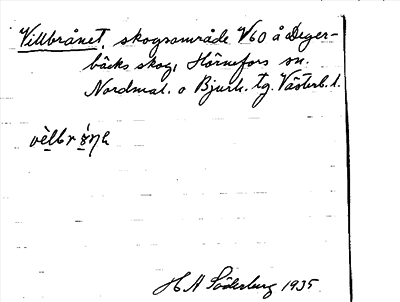 Villbrånet, skogsområde V60 å Deger-
bäcks skog, Hörnefors sn.
Nordmal. o Bjurh. tg. Västerb. l.
H A Söderberg 1935